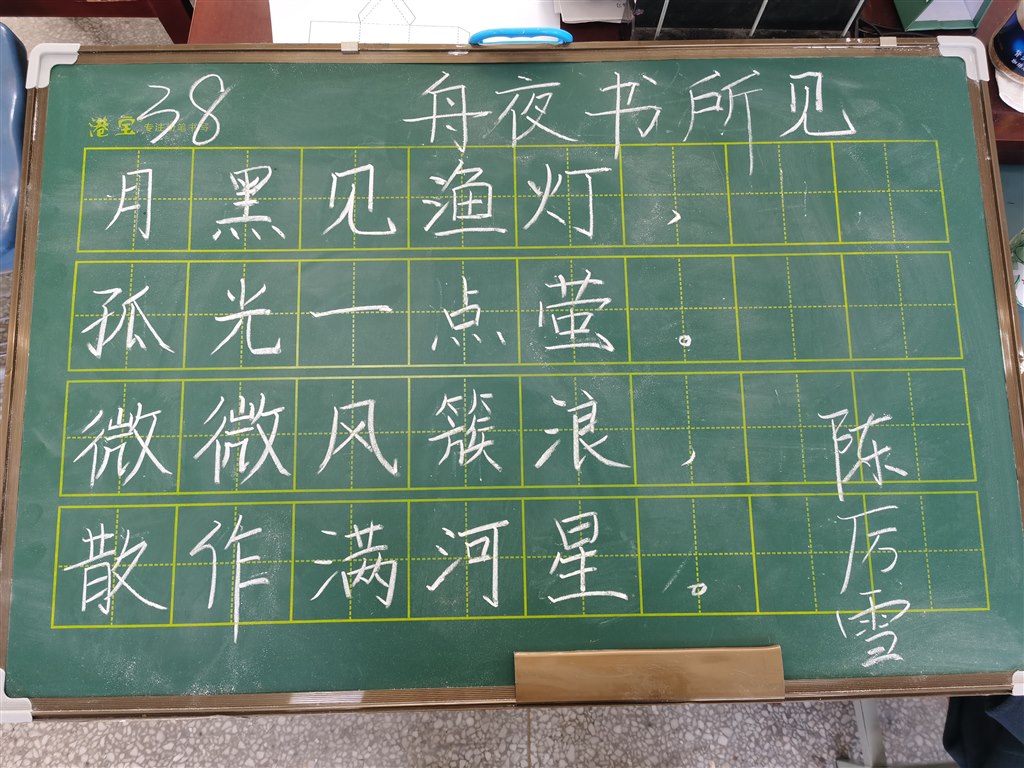 38 舟夜书所见
港宝
月黑见渔灯，
孤光一点萤。
微微风簇浪，
散作满河星。
陈厉雪